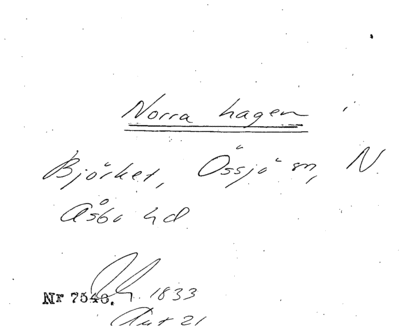 Norra hagen
Björket, Össjö sn, N
Åsbo hd
Nr 7540. 1833
21